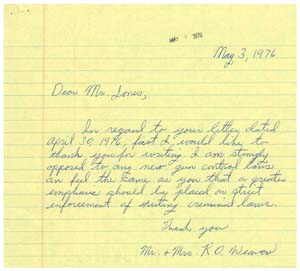 MAY 1976
May 3, 1976
Dear Mr. Jones,
In regard to your letter dated
April 30, 1976, first I would like to
thank you for writing I am strongly
opposed to any new gun control laws
an feel the same as you that a greater
emphasis should be placed on strict
enforcement of existing criminal laws.
Thank you
Mr. & Mrs. R.O. Weaver